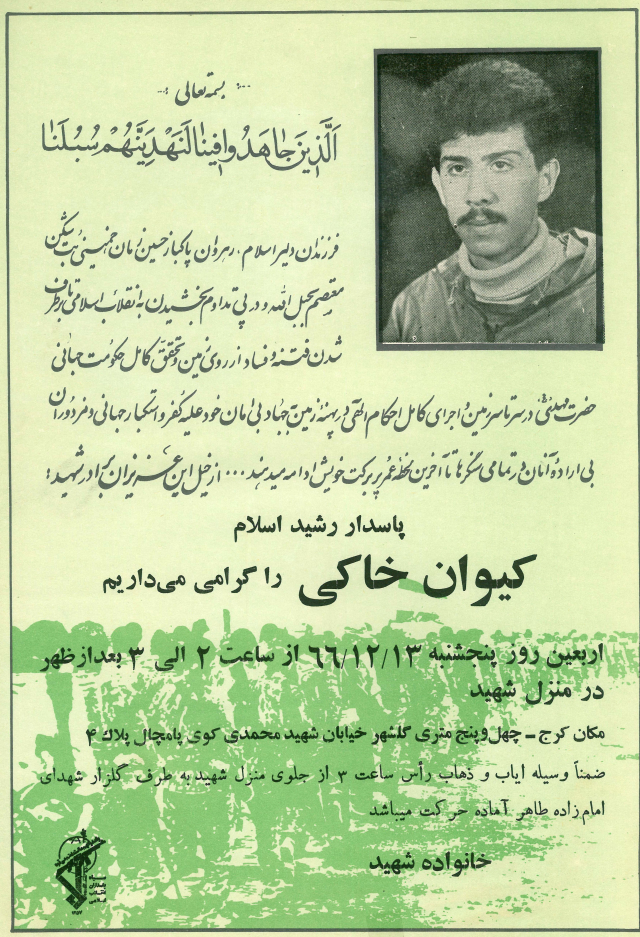 بسمه تعالی
اَلَّذینَ جاهَدُوا فینا لَنَهْدِیَنَّهُمْ سُبُلَنا
فرزندان دلیر اسلام، رهروان پاکباز حسین زمان خمینی بت شکن
معتصم بحبل الله و در پی تداوم بخشیدن به انقلاب اسلامی تا برطرف
شدن فتنه و فساد از روی زمین و تحقق کامل حکومت جهانی
حضرت مهدی در سرتاسر زمین و اجرای کامل احکام الهی در پهنه زمین به جهاد بی امان خود علیه کفر و استکبار جهانی و مزدوران
بی اراده آنان در تمامی سنگرها تا آخرین لحظه عمر پر برکت خویش ادامه میدهند ... از خیل این عزیزان برادر شهید:
پاسدار رشید اسلام
کیوان خاکی را گرامی می‌داریم
اربعین روز پنجشنبه ۶۶/۱۲/۱۳ از ساعت ۲ الی ۳ بعدازظهر
در منزل شهید
مکان کرج ـ چهل‌وپنج متری گلشهر خیابان شهید محمدی کوی پامچال پلاك ۴
ضمناً وسیله ایاب و ذهاب رأس ساعت ۳ از جلوی منزل شهید به طرف گلزار شهدای
امام‌زاده طاهر آماده حرکت میباشد
خانواده شهید
سپاه
پاسداران
انقلاب
اسلامی